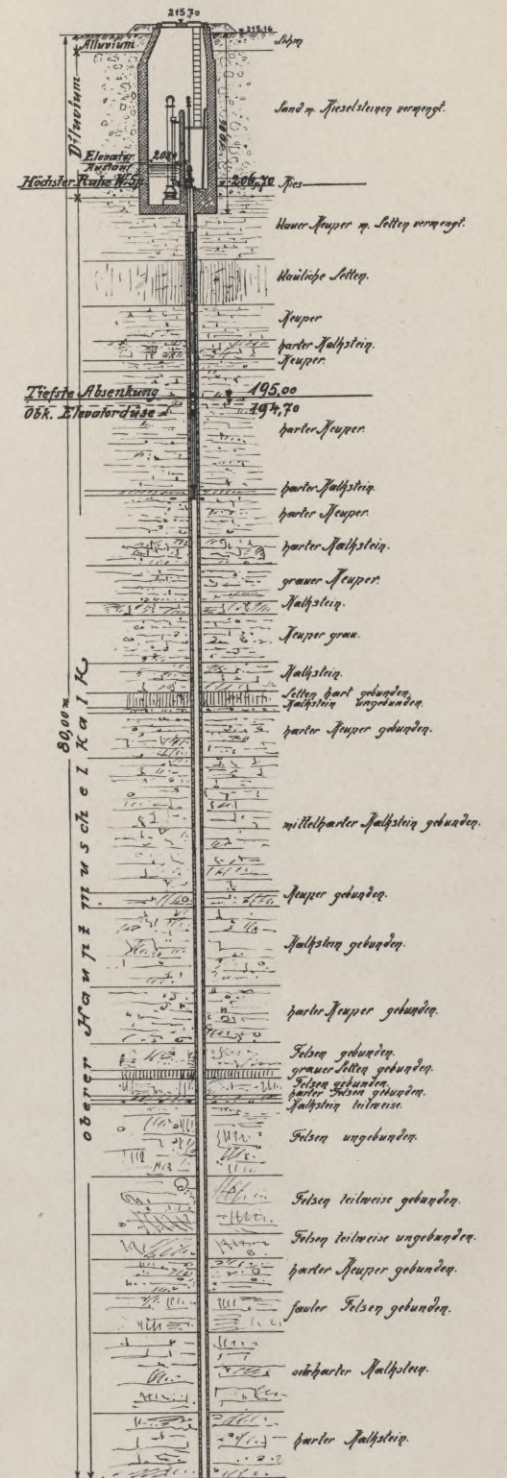 215.70
215.14
Alluvium
Lehm
Diluvium
Sand m. Kieselsteinen vermengt.
10,00
Elevator
Auslauf
Höchster Ruhe W.Sp.
206,70
Kies
blauer Keuper m. Letten vermengt.
blauliche Letten.
Keuper
harter Kalkstein.
Keuper.
Tiefste Absenkung
195,00
Obk. Elevatordüse
194,70
harter Keuper.
harter Kalkstein.
harter Keuper.
harter Kalkstein.
grauer Keuper.
Kalkstein.
Keuper grau.
Kalkstein.
Letten hart gebunden.
Kalkstein ungebunden.
harter Keuper gebunden.
80,00 m
oberer Hauptmuschelkalk
mittelharter Kalkstein gebunden.
Keuper gebunden.
Kalkstein gebunden.
harter Keuper gebunden.
Felsen gebunden.
grauer Letten gebunden.
Felsen gebunden.
harter Felsen gebunden.
Kalkstein teilweise.
Felsen ungebunden.
Felsen teilweise gebunden.
Felsen teilweise ungebunden.
harter Keuper gebunden.
fauler Felsen gebunden.
harter Kalkstein.
harter Kalkstein.